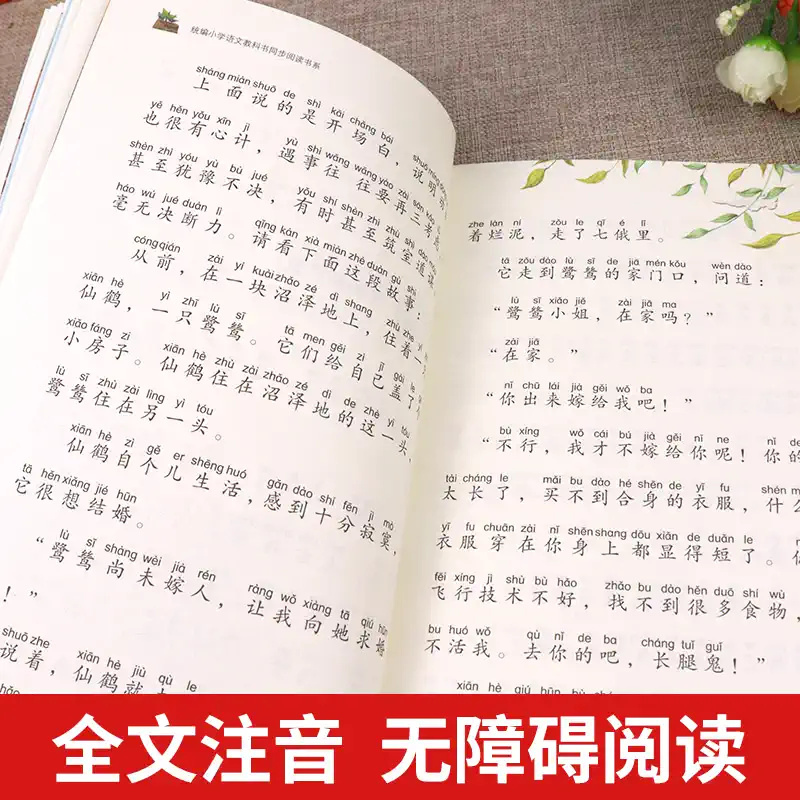 统编小学语文教科书同步阅读书系
shàng miàn shuō de shì kāi chǎng bái shuō míng
上面说的是开场白，说明
yě hěn yǒu xīn jì yù shì wǎng wǎng yào zài sān kǎo
也很有心计，遇事往往要再三考
shèn zhì yóu yù bù jué yǒu shí shèn zhì zhù shì dào
甚至犹豫不决，有时甚至筑室道
háo wú jué duàn lì qǐng kàn xià miàn zhè duàn gù shi
毫无决断力。请看下面这段故事：
cóng qián zài yí kuài zhǎo zé dì shang zhù zhe yì
从前，在一块沼泽地上，住着一
xiān hè yì zhī lù sī tā men gěi zì jǐ gài le
仙鹤，一只鹭鸶。它们给自己盖了
xiǎo fáng zi xiān hè zhù zài zhǎo zé dì de zhè yì tóu
小房子。仙鹤住在沼泽地的这一头，
lù sī zhù zài lìng yì tóu
鹭鸶住在另一头。
xiān hè zì gě er shēng huó gǎn dào shí fēn jì mò
仙鹤自个儿生活，感到十分寂寞，
tā hěn xiǎng jié hūn
它很想结婚。
lù sī shàng wèi jià rén ràng wǒ xiàng tā qiú hūn
“鹭鸶尚未嫁人，让我向她求婚
！”
shuō zhe xiān hè jiù qù le
说着，仙鹤就
zhe làn ní zǒu le qī é lǐ
着烂泥，走了七俄里。
tā zǒu dào lù sī de jiā mén kǒu wèn dào
它走到鹭鸶的家门口，问道：
lù sī xiǎo jiě zài jiā ma
“鹭鸶小姐，在家吗？”
zài jiā
“在家。”
nǐ chū lái jià gěi wǒ ba
“你出来嫁给我吧！”
bù xíng wǒ cái bú jià gěi nǐ ne nǐ de
“不行，我才不嫁给你呢！你的
tài cháng le mǎi bu dào hé shēn de yī fu shén
太长了，买不到合身的衣服，什么
yī fu chuān zài nǐ shēn shang dōu xiǎn de duǎn le
衣服穿在你身上都显得短了。
fēi xíng jì shù bù hǎo zhǎo bu dào hěn duō shí wù
飞行技术不好，找不到很多食物，
bu huó wǒ qù nǐ de ba cháng tuǐ guǐ
不活我。去你的吧，长腿鬼！”
xiān hè qiú hūn bù
全文注音 无障碍阅读